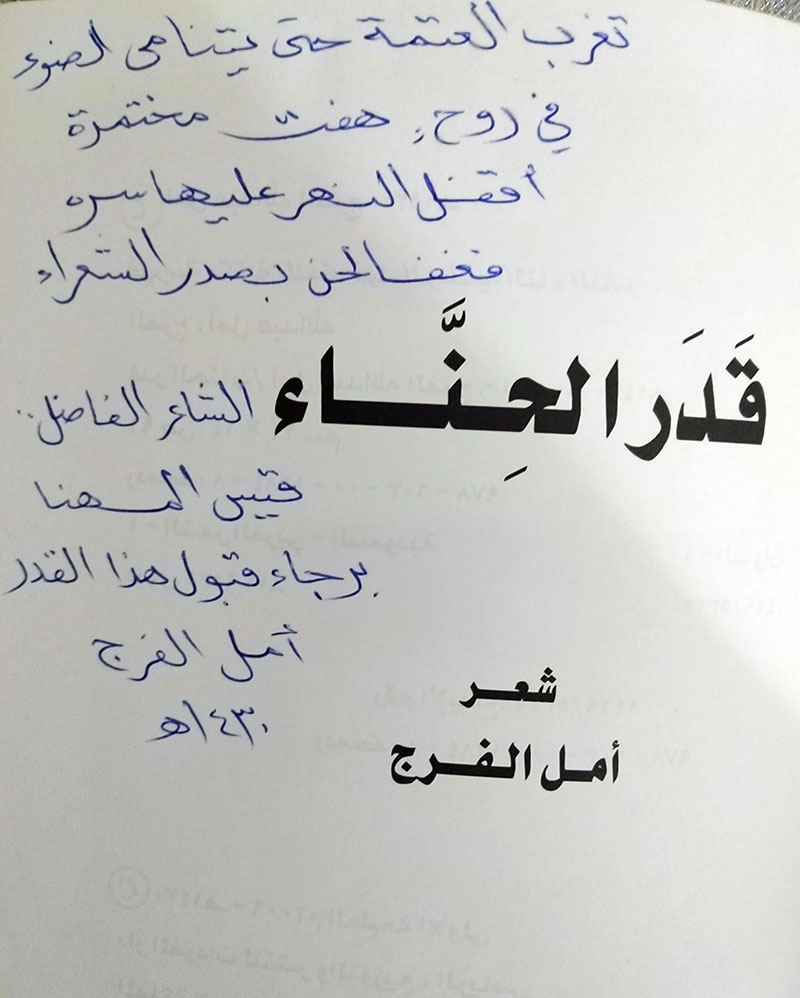 تغرب العتمة حتى يتنامى الضوء
في روحٍ هفت مختمرة
أقفل النهر عليها سره
فغفا لحن بصدر الشعراء
قَدَر الحِنَّاء
الشاعر الفاضل..
قيس المهنا
برجاء قبول هذا القدر
أمل الفرج
١٤٣٠هـ
شعر
أمل الفرج